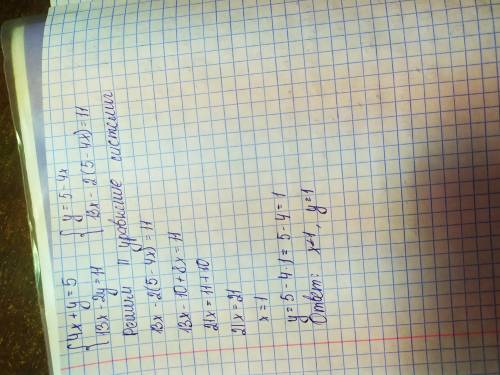 {4x + y = 5 {y = 5 - 4x
{13x - 2y = 11 {13x - 2(5 - 4x) = 11
Решим II уравнение системы
13x - 2(5 - 4x) = 11
13x - 10 + 8x = 11
21x = 11 + 10
21x = 21
x = 1
y = 5 - 4·1 = 5 - 4 = 1
Ответ: x=1, y=1